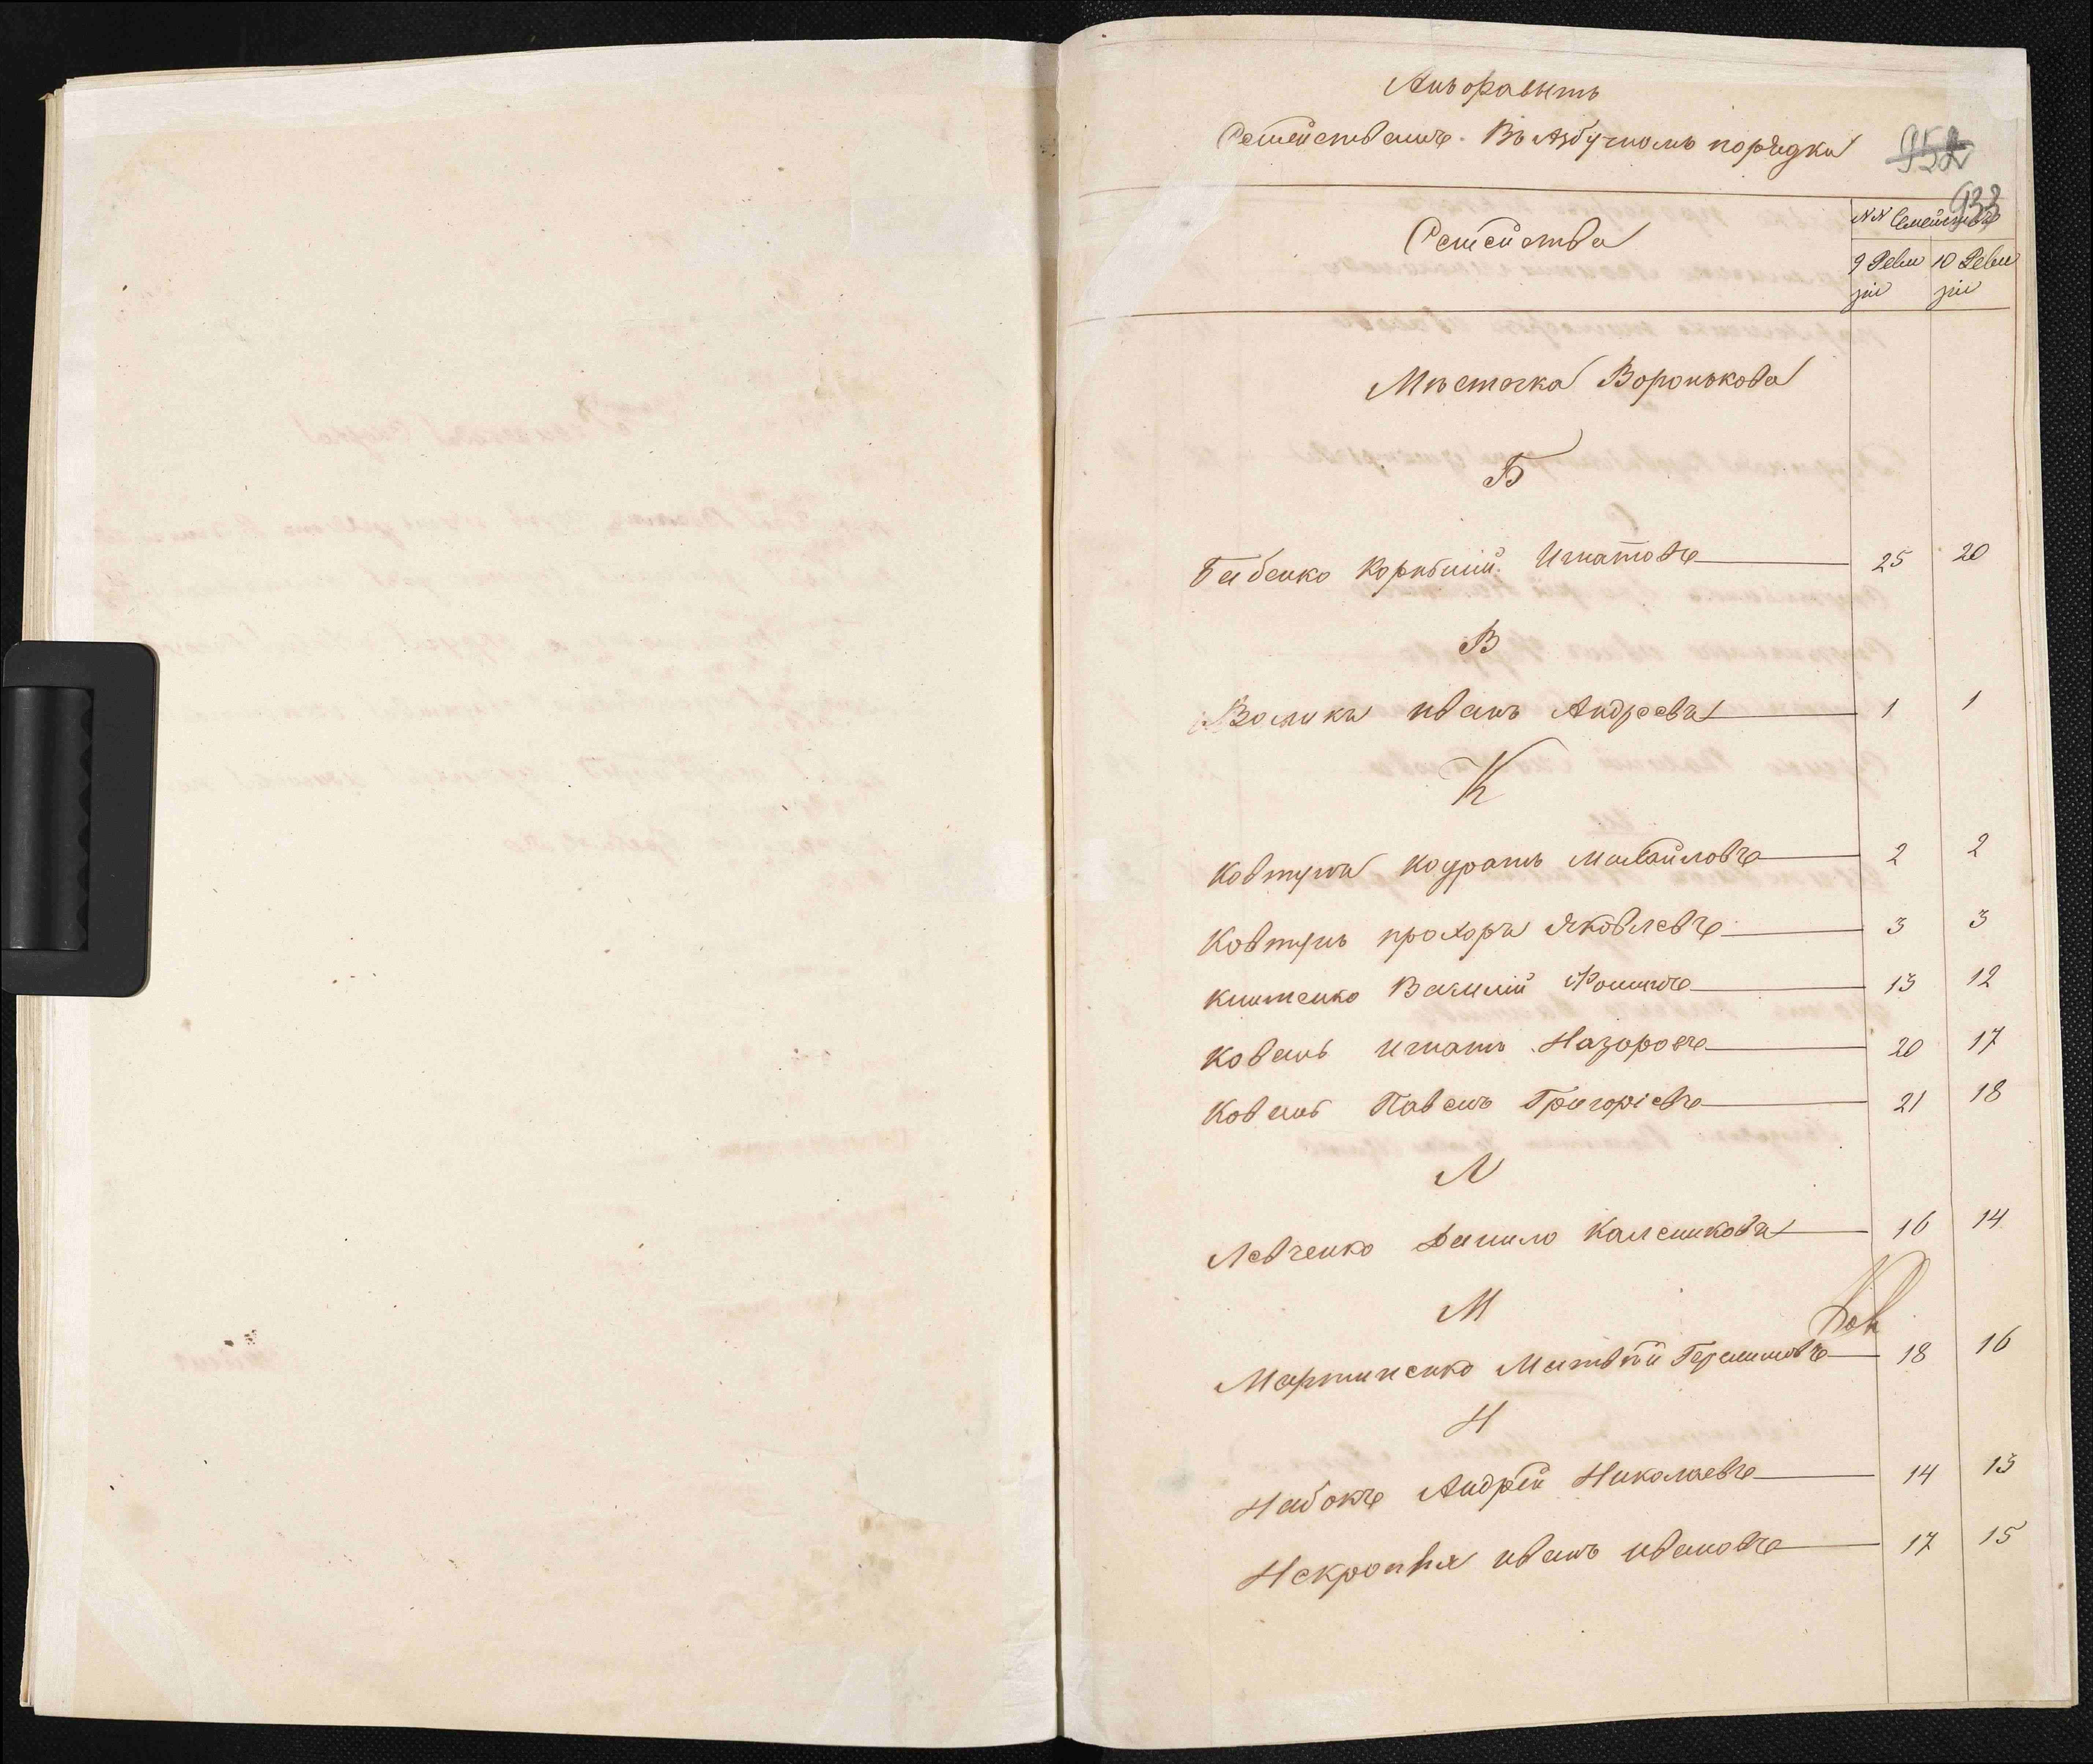 Семействамъ. Въ Азбучномъ порядки
952
933
Семейства
№№ Семействъ
9 Реви
зіи
10 Реви
зіи
Мѣстечка Воронькова
Б
Бабенко Корнѣлій Игнатовъ 25 20
В
Воликъ иванъ Андреевъ 1 1
К
Ковтунъ Кодратъ Михайловъ 2 2
Ковтунъ прохоръ Яковлевъ 3 3
Василій Фоминъ 13 12
Кованъ Игнатъ Назоровъ 20 17
Кованъ Павелъ Григоріевъ 21 18
Л
Левченко Данило Калениковъ 16 14
М
Мартиненко Матвѣй Герасимовъ 18 16
Н
Набокъ Андрѣй Николаевъ 14 13
иванъ ивановъ 17 15